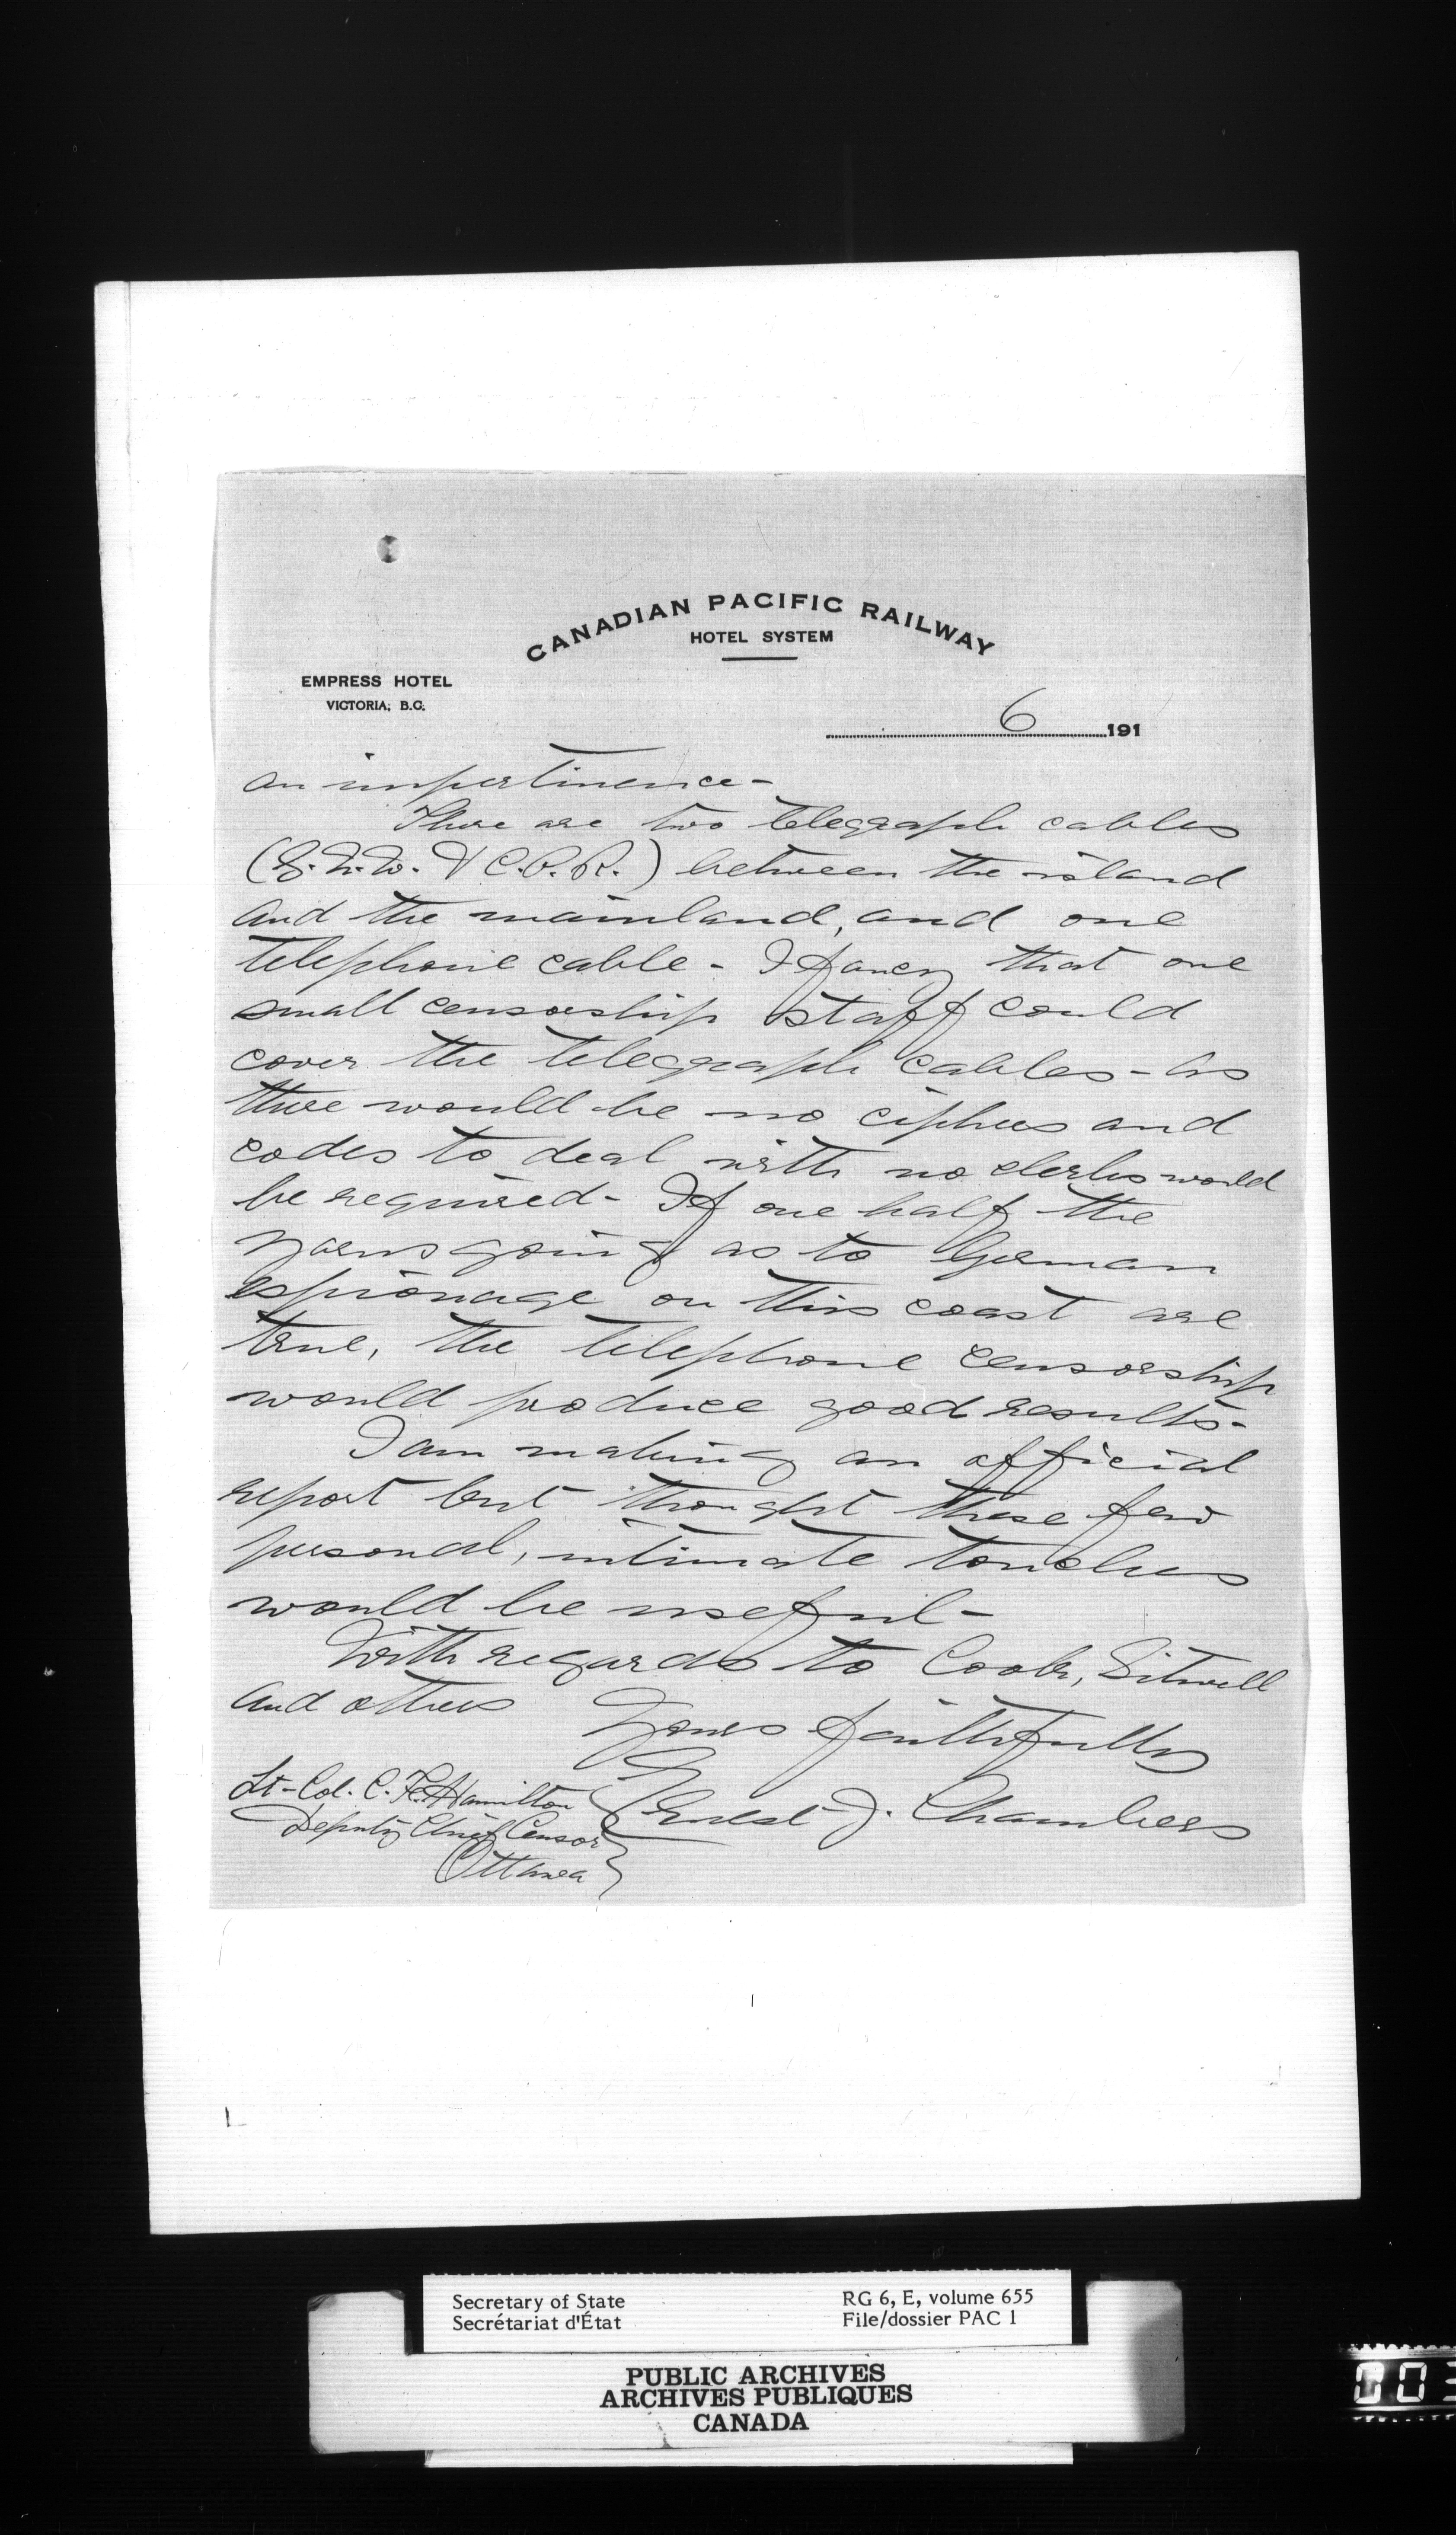 CANADIAN PACIFIC RAILWAY
HOTEL SYSTEM
EMPRESS HOTEL
VICTORIA, B.C.
6 191
an impertinence -
There are two telegraph cables
(G.N.W. & C.P.R.) between the island
and the mainland, and one
telephone cable - I fancy that one
small censorship staff could
cover the telegraph cables - As
there would be no ciphers and
codes to deal with no clerks would
be required - If one half the
yarns going as to German
espionage on this coast are
true, the telephone censorship
would produce good results -
I am making an official
report but thought these few
personal, intimate touches
would be useful -
With regards to Cook, Sitwell
and others
Yours faithfully
Ernest J. Chambers
Lt-Col. C. F. Hamilton
Deputy Chief Censor
Ottawa
Secretary of State
Secrétariat d'État
RG 6, E, volume 655
File/dossier PAC 1
PUBLIC ARCHIVES
ARCHIVES PUBLIQUES
CANADA